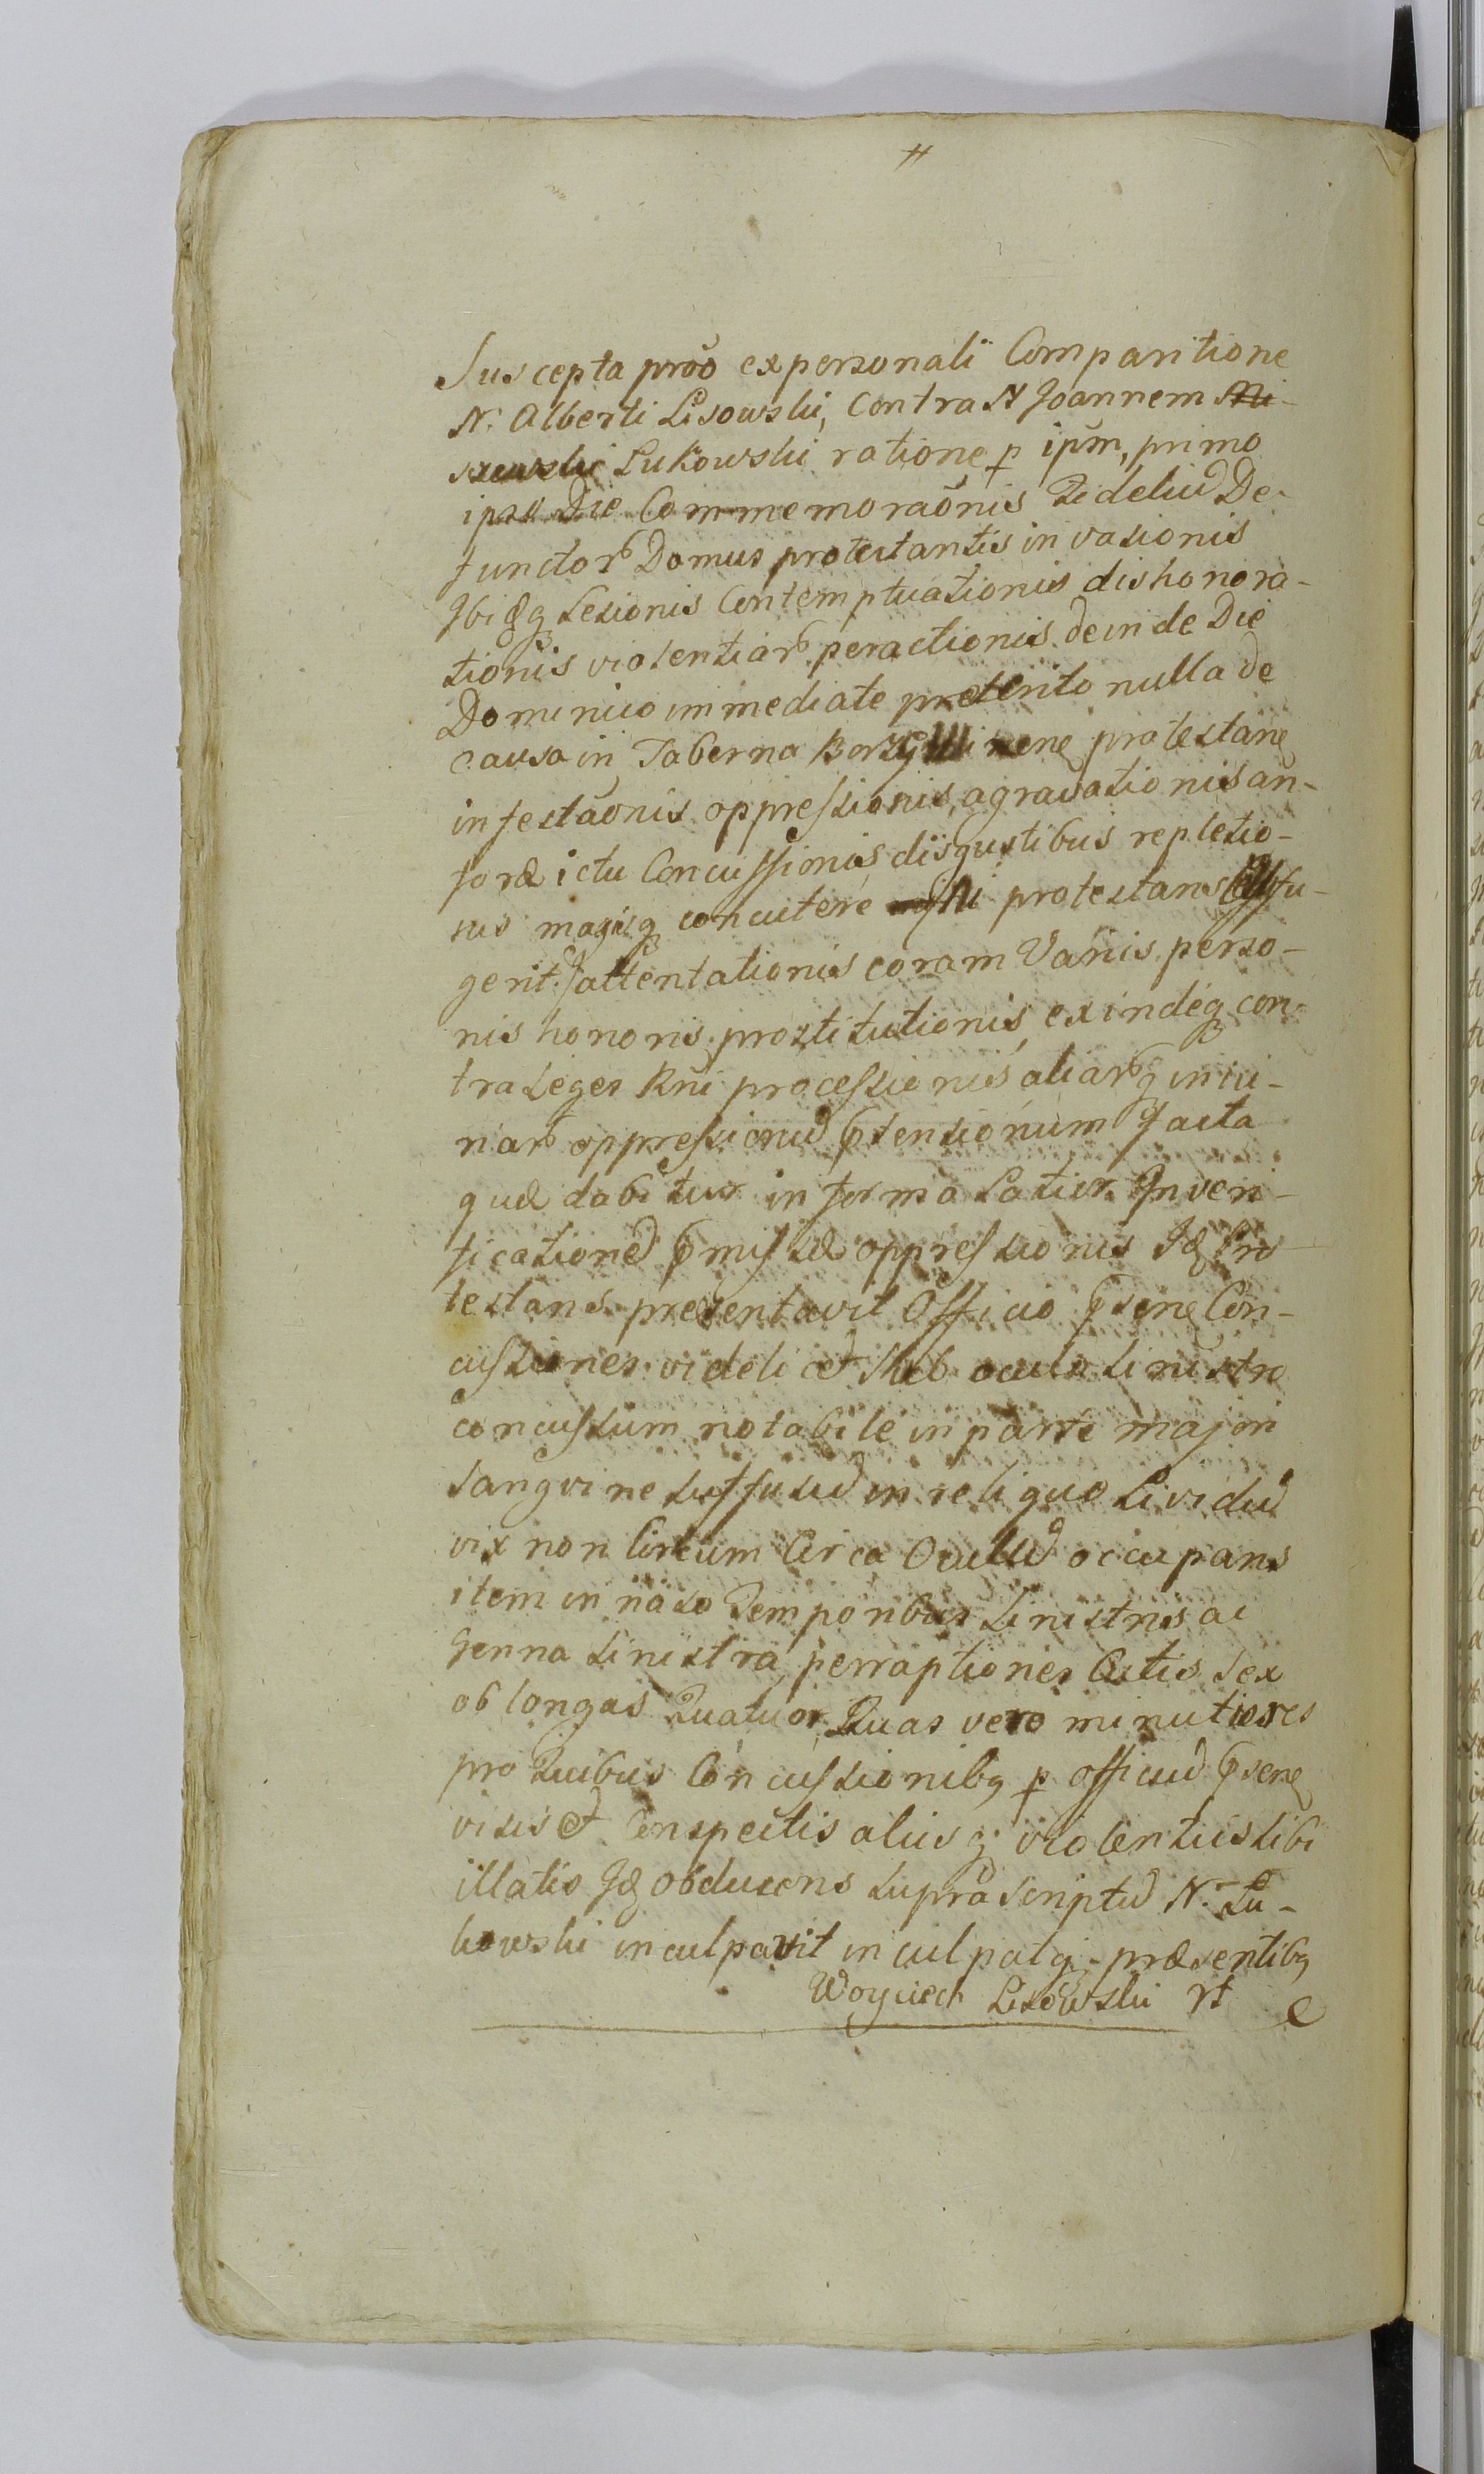 #
Suscepta prõo ex personali Comparitione
N. Alberti Lisowski, Contra N Joannem Mi-
szewski Lukowski ratione p ipũm, primo
ipso Die Commemoraõnis Fideliũ De-
functor. Domus protestantis invasionis
Ibidẽq Lesionis Contemptuationis dishonora-
tionis violentiar. peractionis deinde Die
Dominico immediate preterito nulla de
causa in Taberna protestanẽ
infestaõnis oppressionis, agravationis an-
foræ ictu Concussionis disgustibus repletio-
nis magisq concutere ni protestans effu-
gerit attentationis coram Variis perso-
nis honoris prostitutionis, exindeq con-
tra Leges Rñi processionis aliarq iniu-
riar. oppressionũ ptensionum facta
quæ dabitur in forma Latior. In veri-
ficationẽ pmissæ oppressionis Idẽ Pro
testans presentavit Officio psenẽ Con-
cussiones videlicet sub oculo sinistro
concussum notabile in parte majori
sangvine suffusũ in reliquo Lividũ
vix non Circum Circa Oculũ occupans
item in naso Temporibus sinistris ac
Genna sinistra, perraptiones Cutis sex
oblongas Quatuor, Duas vero minutiores
pro Quibus Concussionibq p officiũ psenẽ
visis et Conspectis aliisq violentiis sibi
illatis Idẽ obducens supra scriptũ N. Lu-
kowski inculpavit inculpatq præsentibq
Woyciech Lisowski